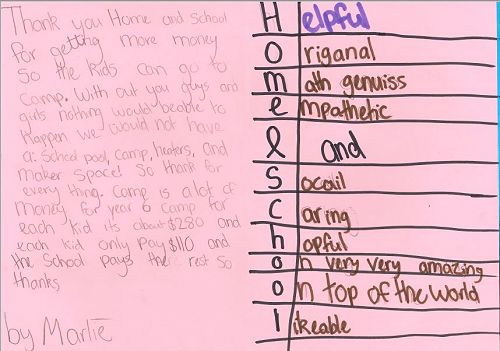 Thank you Home and School
for getting more money
So the kids can go to
camp. With out you guys and
girls nothing would beable to
happen we would not have
a school pool, camp, heaters, and
maker space! So thank for
every thing. Camp is a lot of
money for year 6 camp for
each kid its about $280 and
each kid only pay $110 and
the school pays the rest so
thanks
by Marlie
Helpful
Origanal
math genuiss
empathetic
& and
Socail
Caring
hopful
on very very amazing
on top of the world
likeable